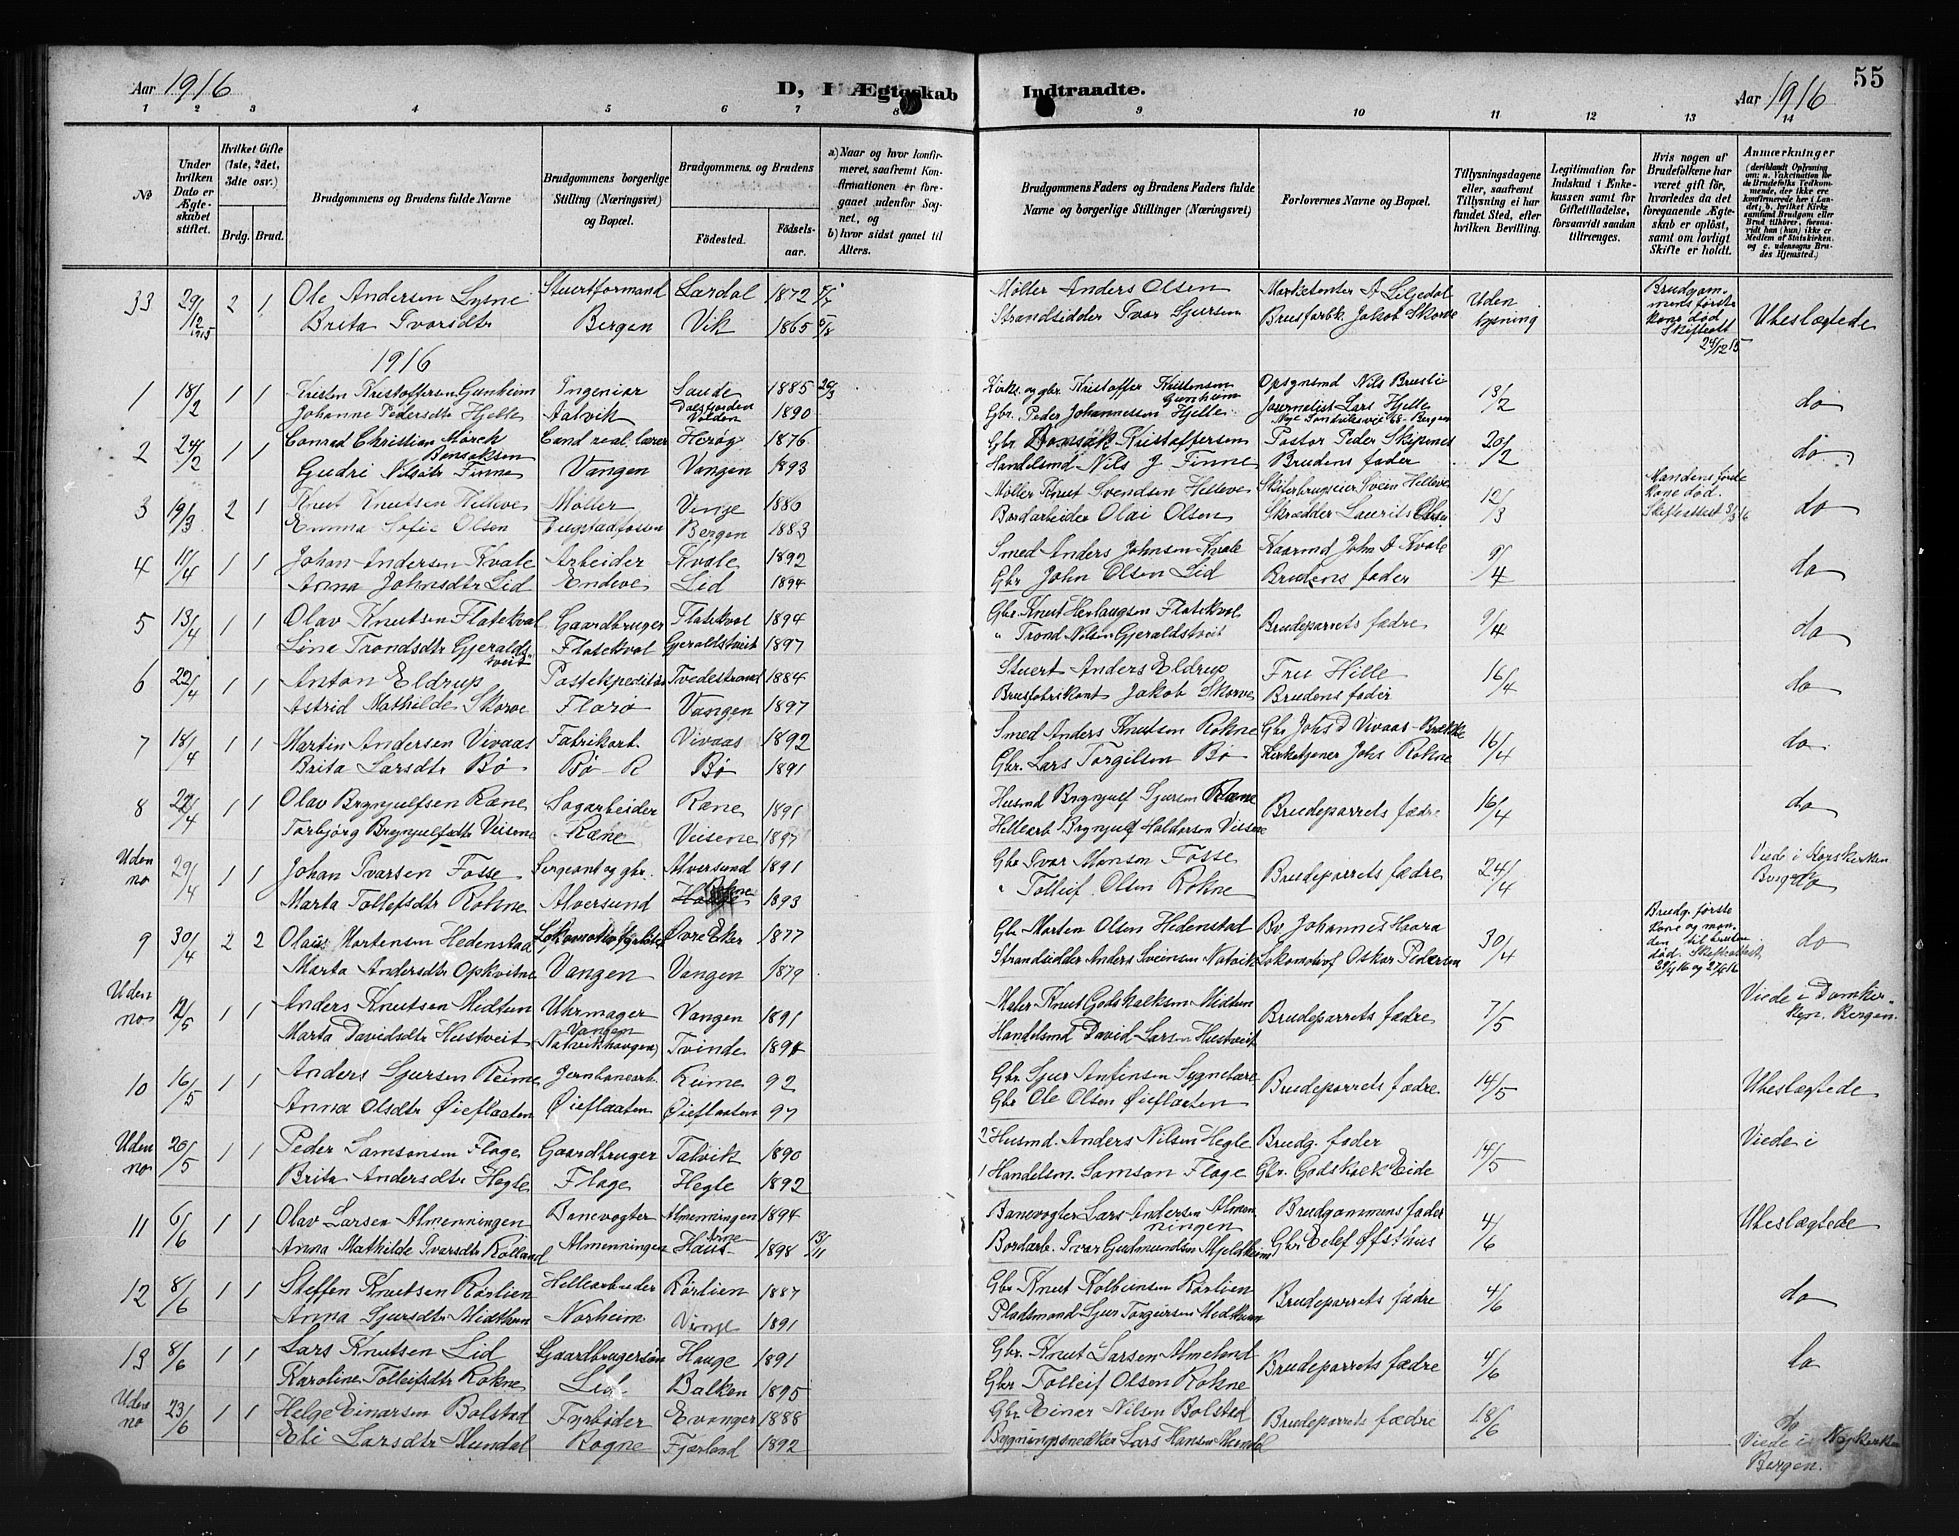 Aar 1916
D, I Ægteskab
Indtraadte.
Aar 1916
55
1 2 3 4 5 6 7 8
9 10 11 12 13 14
No
Under hvilken Dato er Ægteskabet stiftet.
Hvilket Gifte (1ste, 2det, 3die osv.)
Brdg. Brud.
Brudgommens og Brudens fulde Navne
Brudgommens borgerlige Stilling (Næringsvei) og Bopæl.
Brudgommens og Brudens
Fødested.
Fødselsaar.
a) Naar og hvor konfirmeret, saafremt Konfirmationen er foregaaet udenfor Sognet, og
b) hvor sidst gaaet til Alters.
Brudgommens Faders og Brudens Faders fulde Navne og borgerlige Stillinger (Næringsvei)
Forlovernes Navne og Bopæl.
Tillysningsdagene eller, saafremt Tillysning ei har fundet Sted, efter hvilken Bevilling.
Legitimation for Indskud i Enkekassen samt for Giftetilladelse, forsaavidt saadan tiltrænges.
Hvis nogen af Brudefolkene har været gift før, hvorledes da det foregaaende Ægteskab er opløst, samt om lovligt Skifte er holdt.
Anmærkninger
33 29/12 1915 2 1 Ole Andersen Lysne Stuertformand Lærdal 1872 Møller Anders Olsen Marketenter A Liljedal Uden Brudgommens første kone død Skifteatt 24/12 15 Ubeslægtede
Brita Ivarsdtr Bergen Vik 1865 Strandsidder Ivar Sjursen Brusfabk. Jakob Skorve lysning
1916
1 18/2 1 1 Kristen Kristoffersen Gunheim Ingeniør Saude 1885 Kirks. og gbr. Kristoffer Kristensen Gunheim Opsynsmd Nils Brusli 13/2 do
Johanne Pedersdtr Hjelle Aalvik Dalsfjorden Volden 1890 Gbr. Peder Johannessen Hjelle Journalist Lars Hjelle Bergen
2 24/2 1 1 Conrad Christian Mørch Bansaksen Cand real. lærer Herøy 1876 Gbr Kristoffersen Pastor Peder Skipenes 20/2 do
Gudri Nilsdtr Finne Vangen Vangen 1893 Handelsmd Nils J Finne Brudens fader
3 19/3 2 1 Knut Knutsen Helleve Møller Vinje 1880 Møller Knut Svendsen Helleve Skiferbrugseier Svein Helleve 12/3 Mandens første kone død. Skifteattest 3/3 16 do
Emma Sofie Olsen Bergen 1883 Bordarbeider Olai Olsen Skrædder Laurits Olsen
4 11/4 1 1 Johan Andersen Kvale Arbeider Kvale 1892 Smed Anders Johnsen Kvale Kaarmd John A Kvale 9/4 do
Anna Johnsdtr Lid Endeve Lid 1894 Gbr John Olsen Lid Brudens fader
5 13/4 1 1 Olav Knutsen Flatekval Gaardbruger Flatekval 1894 Gbr Knut Herlaugsen Flatekval Brudeparrets fædre 9/4 do
Lina Trondsdtr Gjeraldstveit Flatekval Gjeraldstveit 1897 " Trond Nilsen Gjeraldstveit
6 22/4 1 1 Anton Eldrup Postekspeditør Tvedestrand 1884 Stuert Anders Eldrup Fru Hille 16/4 do
Astrid Mathilde Skorve Florø Vangen 1897 Brusfabrikant Jakob Skorve Brudens fader
7 18/4 1 1 Martin Andersen Vivaas Fabrikarb. Vivaas 1892 Smed Anders Knutsen Rokne Gbr Johs D Vivaas 16/4 do
Brita Larsdtr Bø Bø R Bø 1891 Gbr. Lars Torgilsen Bø Kirketjener Johs Rokne
8 22/4 1 1 Olav Brynjulfsen Ræne Sagarbeider Ræne 1891 Husmd Brynjulf Sjursen Ræne Brudeparrets fædre 16/4 do
Torbjørg Brynjulfsdtr Veisene Ræne Veisene 1897 Hellearb Brynjulf Haldorsen Veisene
Uden no 29/4 1 1 Johan Ivarsen Fosse Sergeant og gbr. Alversund 1891 Gbr Ivar Monsen Fosse Brudeparrets fædre 24/4 Viede i Korskirken Bergen do
Marta Tollefsdtr Rokne Alversund Rokne 1893 " Tolleif Olsen Rokne
9 30/4 2 2 Olaus Mortensen Hedenstad Øvre Eker 1877 Gbr. Morten Olsen Hedenstad Bv Johannes Haara 30/4 Brudg. første kone og manden til bruden død. Skifteattest do
Marta Andersdtr Opkvitne Vangen Vangen 1879 Strandsidder Anders Sveinsen Natvik Lokomotivf Oskar Pedersen
Uden no 12/5 1 1 Anders Knutsen Midtun Uhrmager Vangen 1891 Maler Knut Godskalksen Midtun Brudeparrets fædre 7/5 Viede i Domkirken, Bergen.
Marta Davidsdtr Hustveit Vangen (Natvikhaugen) Tvinde 1891 Handelsmd David Larsen Hustveit
10 16/5 1 1 Anders Sjursen Reime Jernbanearb. Reime 92 Gbr. Sjur Anfinsen Sygnebære Brudeparrets fædre 14/5 Ubeslægtede
Anna Olsdtr Øieflaaten Øieflaaten Øieflaaten 97 Gbr Ole Olsen Øieflaaten
Uden no 20/5 1 1 Peder Samsonsen Flage Gaardbruger Talvik 1890 2 Husmd. Anders Nilsen Hegle Brudg. fader 14/5 Viede i
Brita Andersdtr Hegle Flage Hegle 1892 1 Handelsm. Samson Flage Gbr. Godskalk Eide
11 6/6 1 1 Olav Larsen Almenningen Banevogter Almenningen 1894 Banevogter Lars Andersen Almenningen Brudgommens fader 4/6 Ubeslægtede
Anna Mathilde Ivarsdtr Rolland Almenningen Haus 1898 13/11 Bordarb. Ivar Gudmundsen Mjeldheim Gbr Eelef Øfsthus
12 8/6 1 1 Steffen Knutsen Rørlien Hellearbeider Rørlien 1887 Gbr. Knut Kolbeinsen Rørlien Brudeparrets fædre 4/6 do
Anna Sjursdtr Midthun Norheim Vinje 1891 Pladsmand Sjur Torgeirsen Midthun
13 8/6 1 1 Lars Knutsen Lid Gaardbrugersøn Hauge 1891 Gbr. Knut Larsen Almeland Brudeparrets fædre 4/6 do
Karoline Tolleifsdtr Rokne Lid Balken 1895 Gbr Tolleif Olsen Rokne
Uden no 23/6 1 1 Helge Einarsen Bolstad Fyrbøder Evanger 1888 Gbr Einar Nilsen Bolstad Brudeparrets fædre 18/6 do
Eli Larsdtr Mundal Rogne Fjærland 1892 Bygningssnedker Lars Hansen Mundal Viede i Nykirken Bergen.